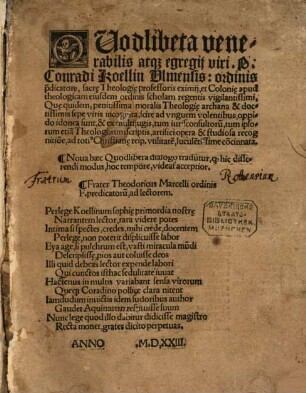 QUodlibeta vene-
rabilis atqȝ egregij viri. P.
Conradi Koellin Ulmensis: ordinis
p̄dicatorū, sacrę Theologię professoris eximij, et Colonię apud
theologicam eiusdem ordinis scholam regentis vigilantissimi,
Que quidem, penitissima moralis Theologię archana & doc-
tissimis sępe viris incognita,
idonea sunt, & ex tum iurꝰcōsultorū, tum ipso-
rum etiā Theologorum scriptis, artifici opera & studiosa reco-
gnitiōe, ad totiꝰ Christianę reip. vtilitatē,
¶ Noua hæc Quodlibera dialogo traduntur, qꝫ hic dif-
ferendi modus, hoc tempore, videaꝰ acceptior.
Fratrum
Rotherinen
¶ Frater Theodoricus Marcelli ordinis
F. prędicatorū, ad lectorem.
Perlege Koellinum sophię primordia nostrę
Narrantem lector, rara videre potes
Intima si spectes, credes, mihi crede, docentem
Perlege, non poterit displicuisse labor
Eya age, si pulchrum est, vasti miracula mūdi
Descripsisse, pios aut coluisse deos
Illi quid debeas lector expende labori
Qui cunctos isthæc sedulitate iuuat
Hactenus in multis variabant sensa virorum
Quęqȝ Coradino pollice clara nitent
Iamdudum inuictis idem sudoribus author
Gaudet Aquinatem restituisse suum
Nunc lege quod illo dabitur didicisse magistro
Recta monet, grates dicito perpetuas.
BAYERISCHE
STAATS-
BIBLIOTHEK
MUENCHEN
ANNO M.D.XXIII.